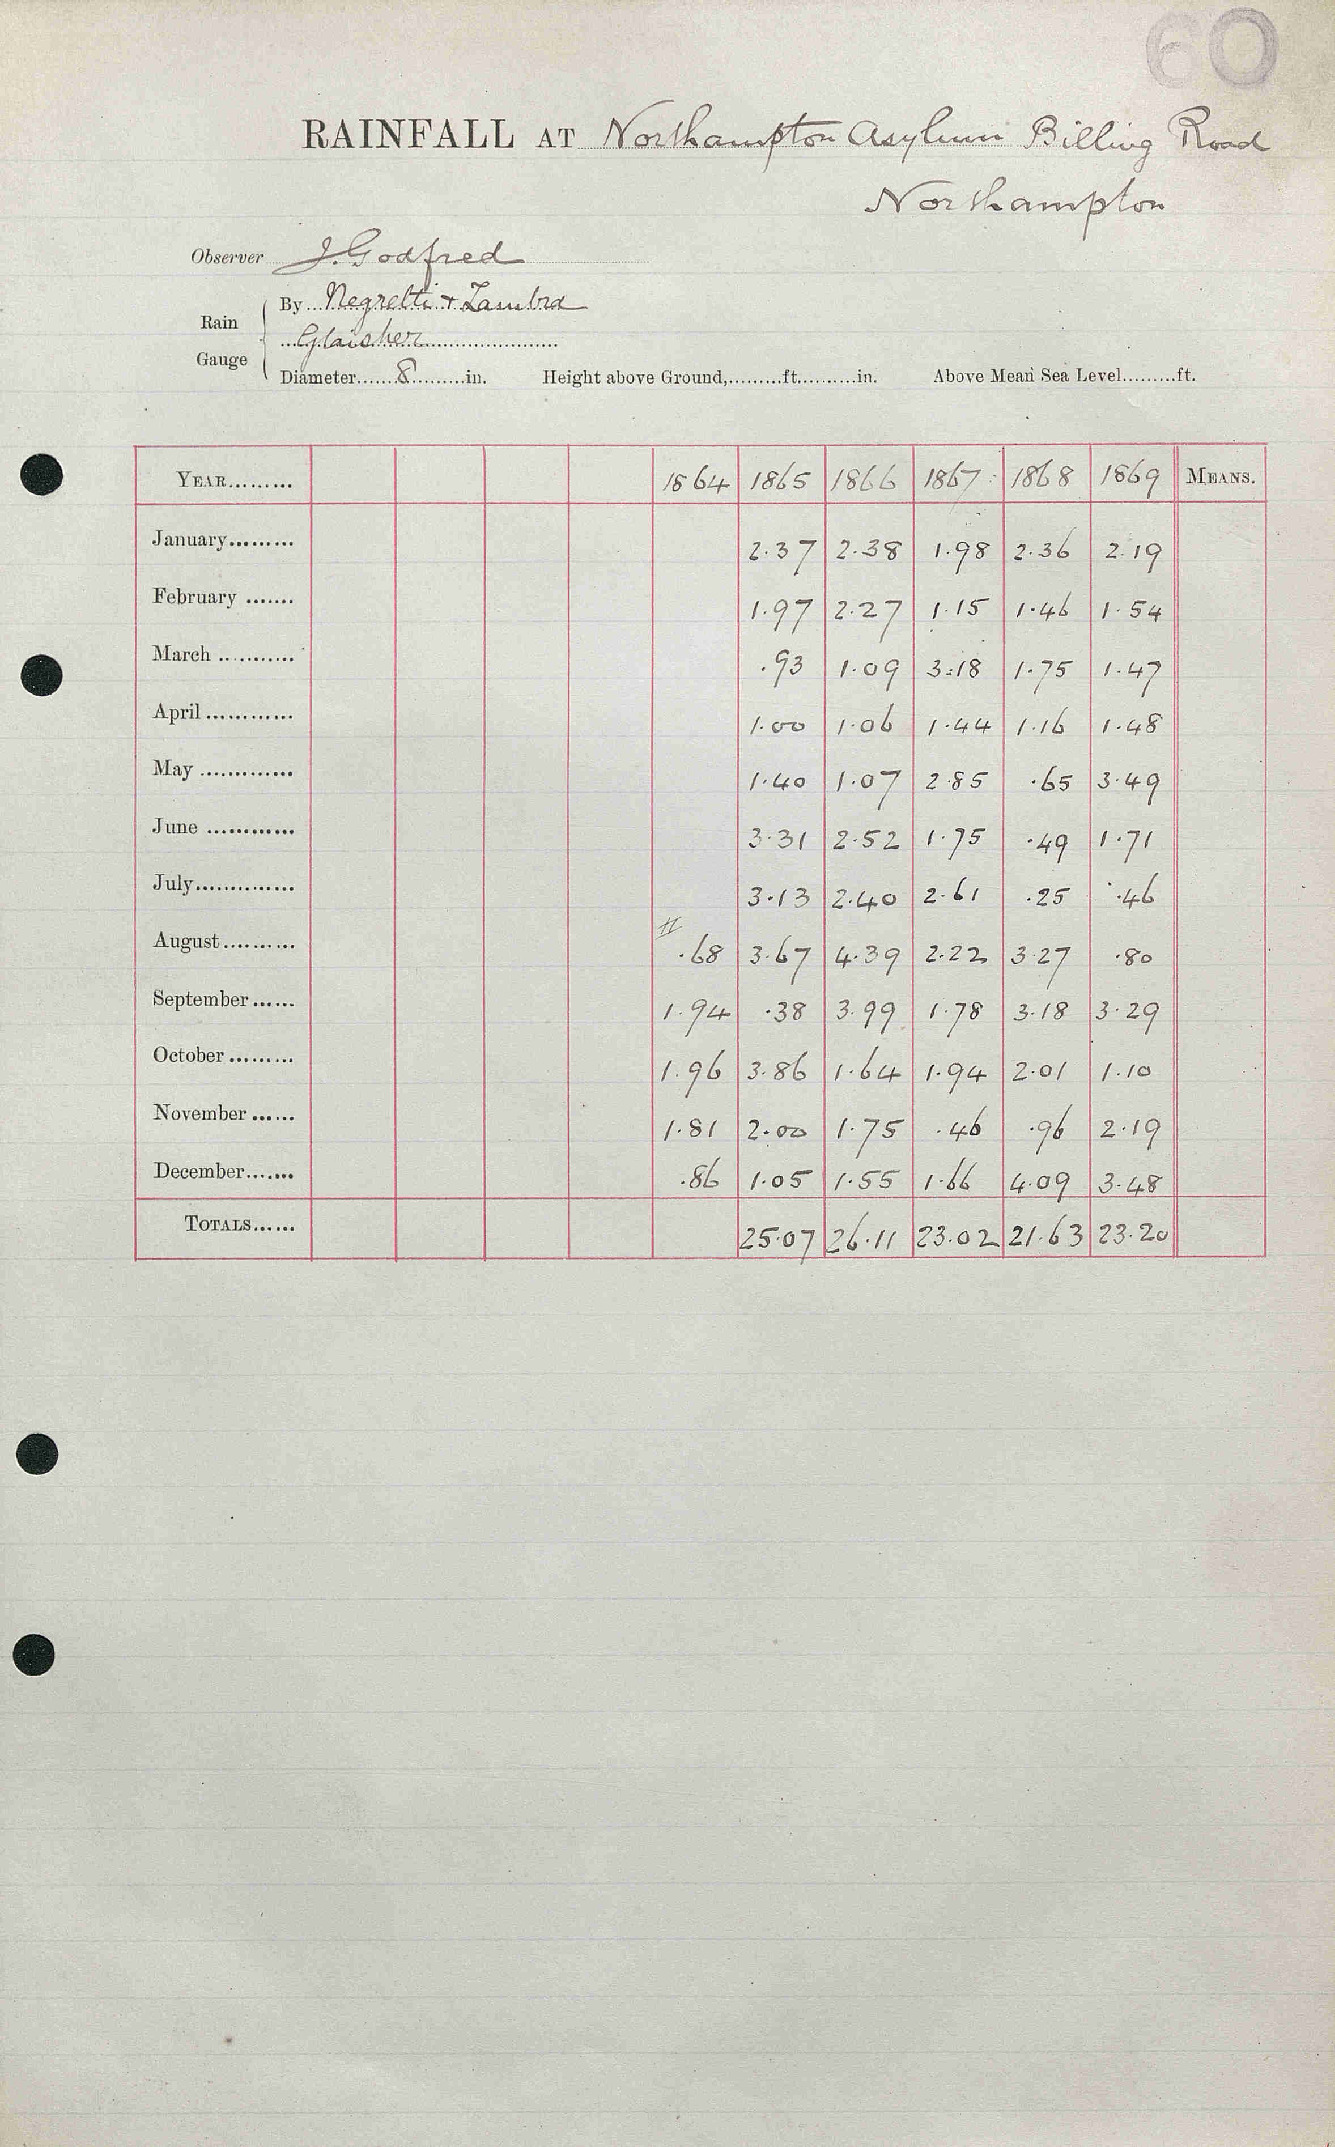 60
RAINFALL AT Northampton Asylum Billing Road
Northampton
Observer J. Godfred
Rain Gauge By Negretti + Zambra
Glaisher
Diameter 8 in. Height above Ground, ft. in. Above Mean Sea Level ft.
YEAR 1864 1865 1866 1867 1868 1869 MEANS.
January 2.37 2.38 1.98 2.36 2.19
February 1.97 2.27 1.15 1.46 1.54
March .93 1.09 3.18 1.75 1.47
April 1.00 1.06 1.44 1.16 1.48
May 1.40 1.07 2.85 .65 3.49
June 3.31 2.52 1.75 .49 1.71
July 3.13 2.40 2.61 .25 .46
August .68 3.67 4.39 2.22 3.27 .80
September 1.94 .38 3.99 1.78 3.18 3.29
October 1.96 3.86 1.64 1.94 2.01 1.10
November 1.81 2.00 1.75 .46 .96 2.19
December .86 1.05 1.55 1.66 4.09 3.48
TOTALS 25.07 26.11 23.02 21.63 23.20